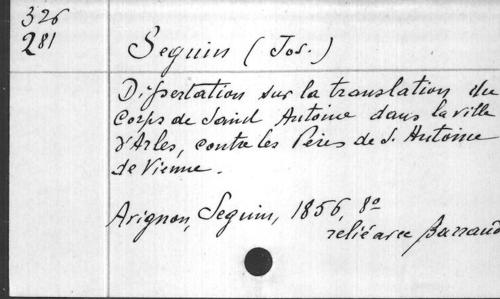 326
281
Seguin (Jos.)
Dissertation sur la translation du
Corps de Saint Antoine dans la ville
d'Arles, contre les Pères de S. Antoine
de Vienne.
Avignon, Seguin, 1856, 8º
relié avec Barraud